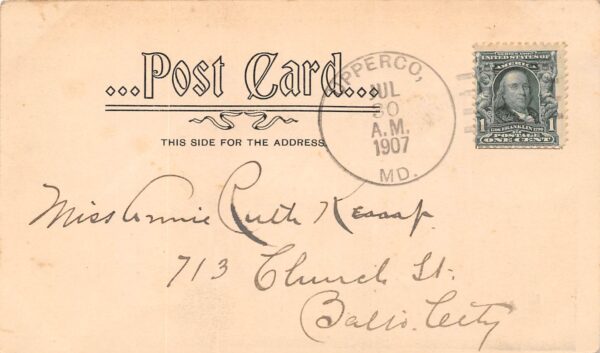 ...Post Card...
THIS SIDE FOR THE ADDRESS.
UPPERCO,
JUL
30
A.M.
1907
MD.
SERIES 1902
UNITED STATES OF
AMERICA
1
1706 FRANKLIN 1790
POSTAGE
ONE CENT
Miss Annie Ruth
713 Church St.
Balto. City